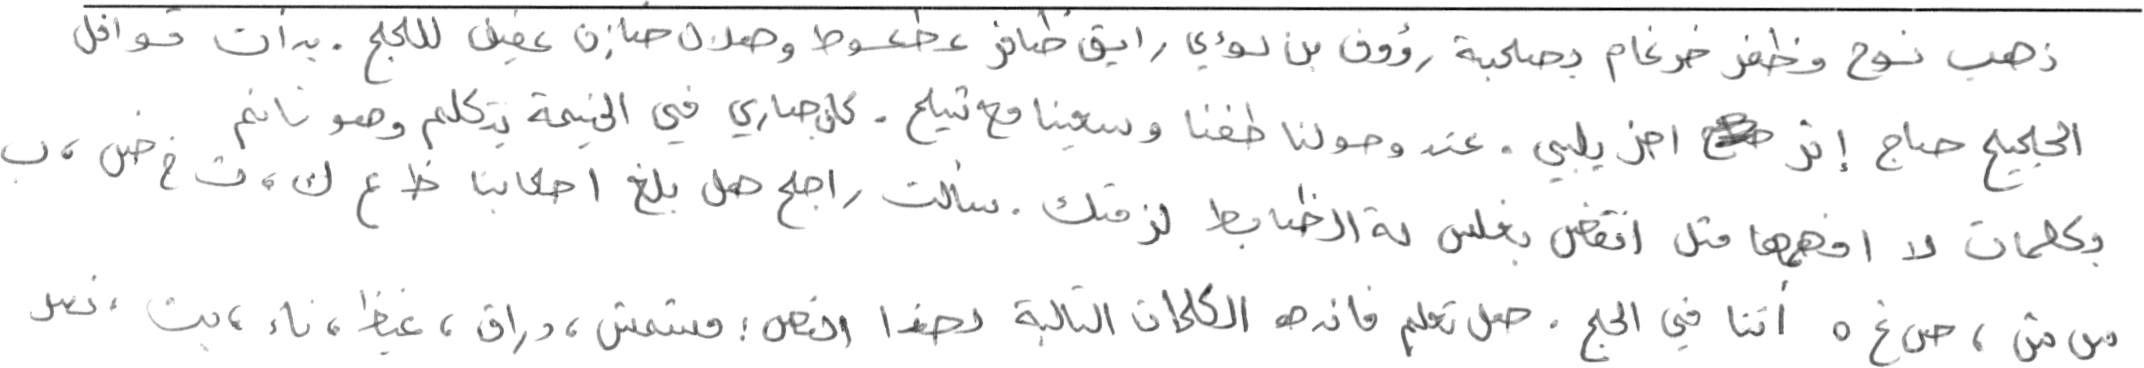 ذهب نوح وظفر ضرغام بصحبة رؤوف بن لؤي رايق ظافر عطعوط وهلال خازن عفيف للحج . بدأت قوافل
الحجيج حاج إثر اخر يلبي . عند وصولنا طفنا وسعينا مع تيلح . كان جاري في الخيمة يتكلم وهو نائم
بكلمات لا افهمها مثل انتفض بغلس لة الظابط لزمتك . سألت راجح هل بلغ احكابنا ظ ع ك ، ث خ ض ، ب
س ش ، ص غ ه أتنا في الحج . هل تعلم فائدة الكلمات التالية لهذا النص : مشمش ، دراق ، غيظ ، ناء ، بت ، نصر